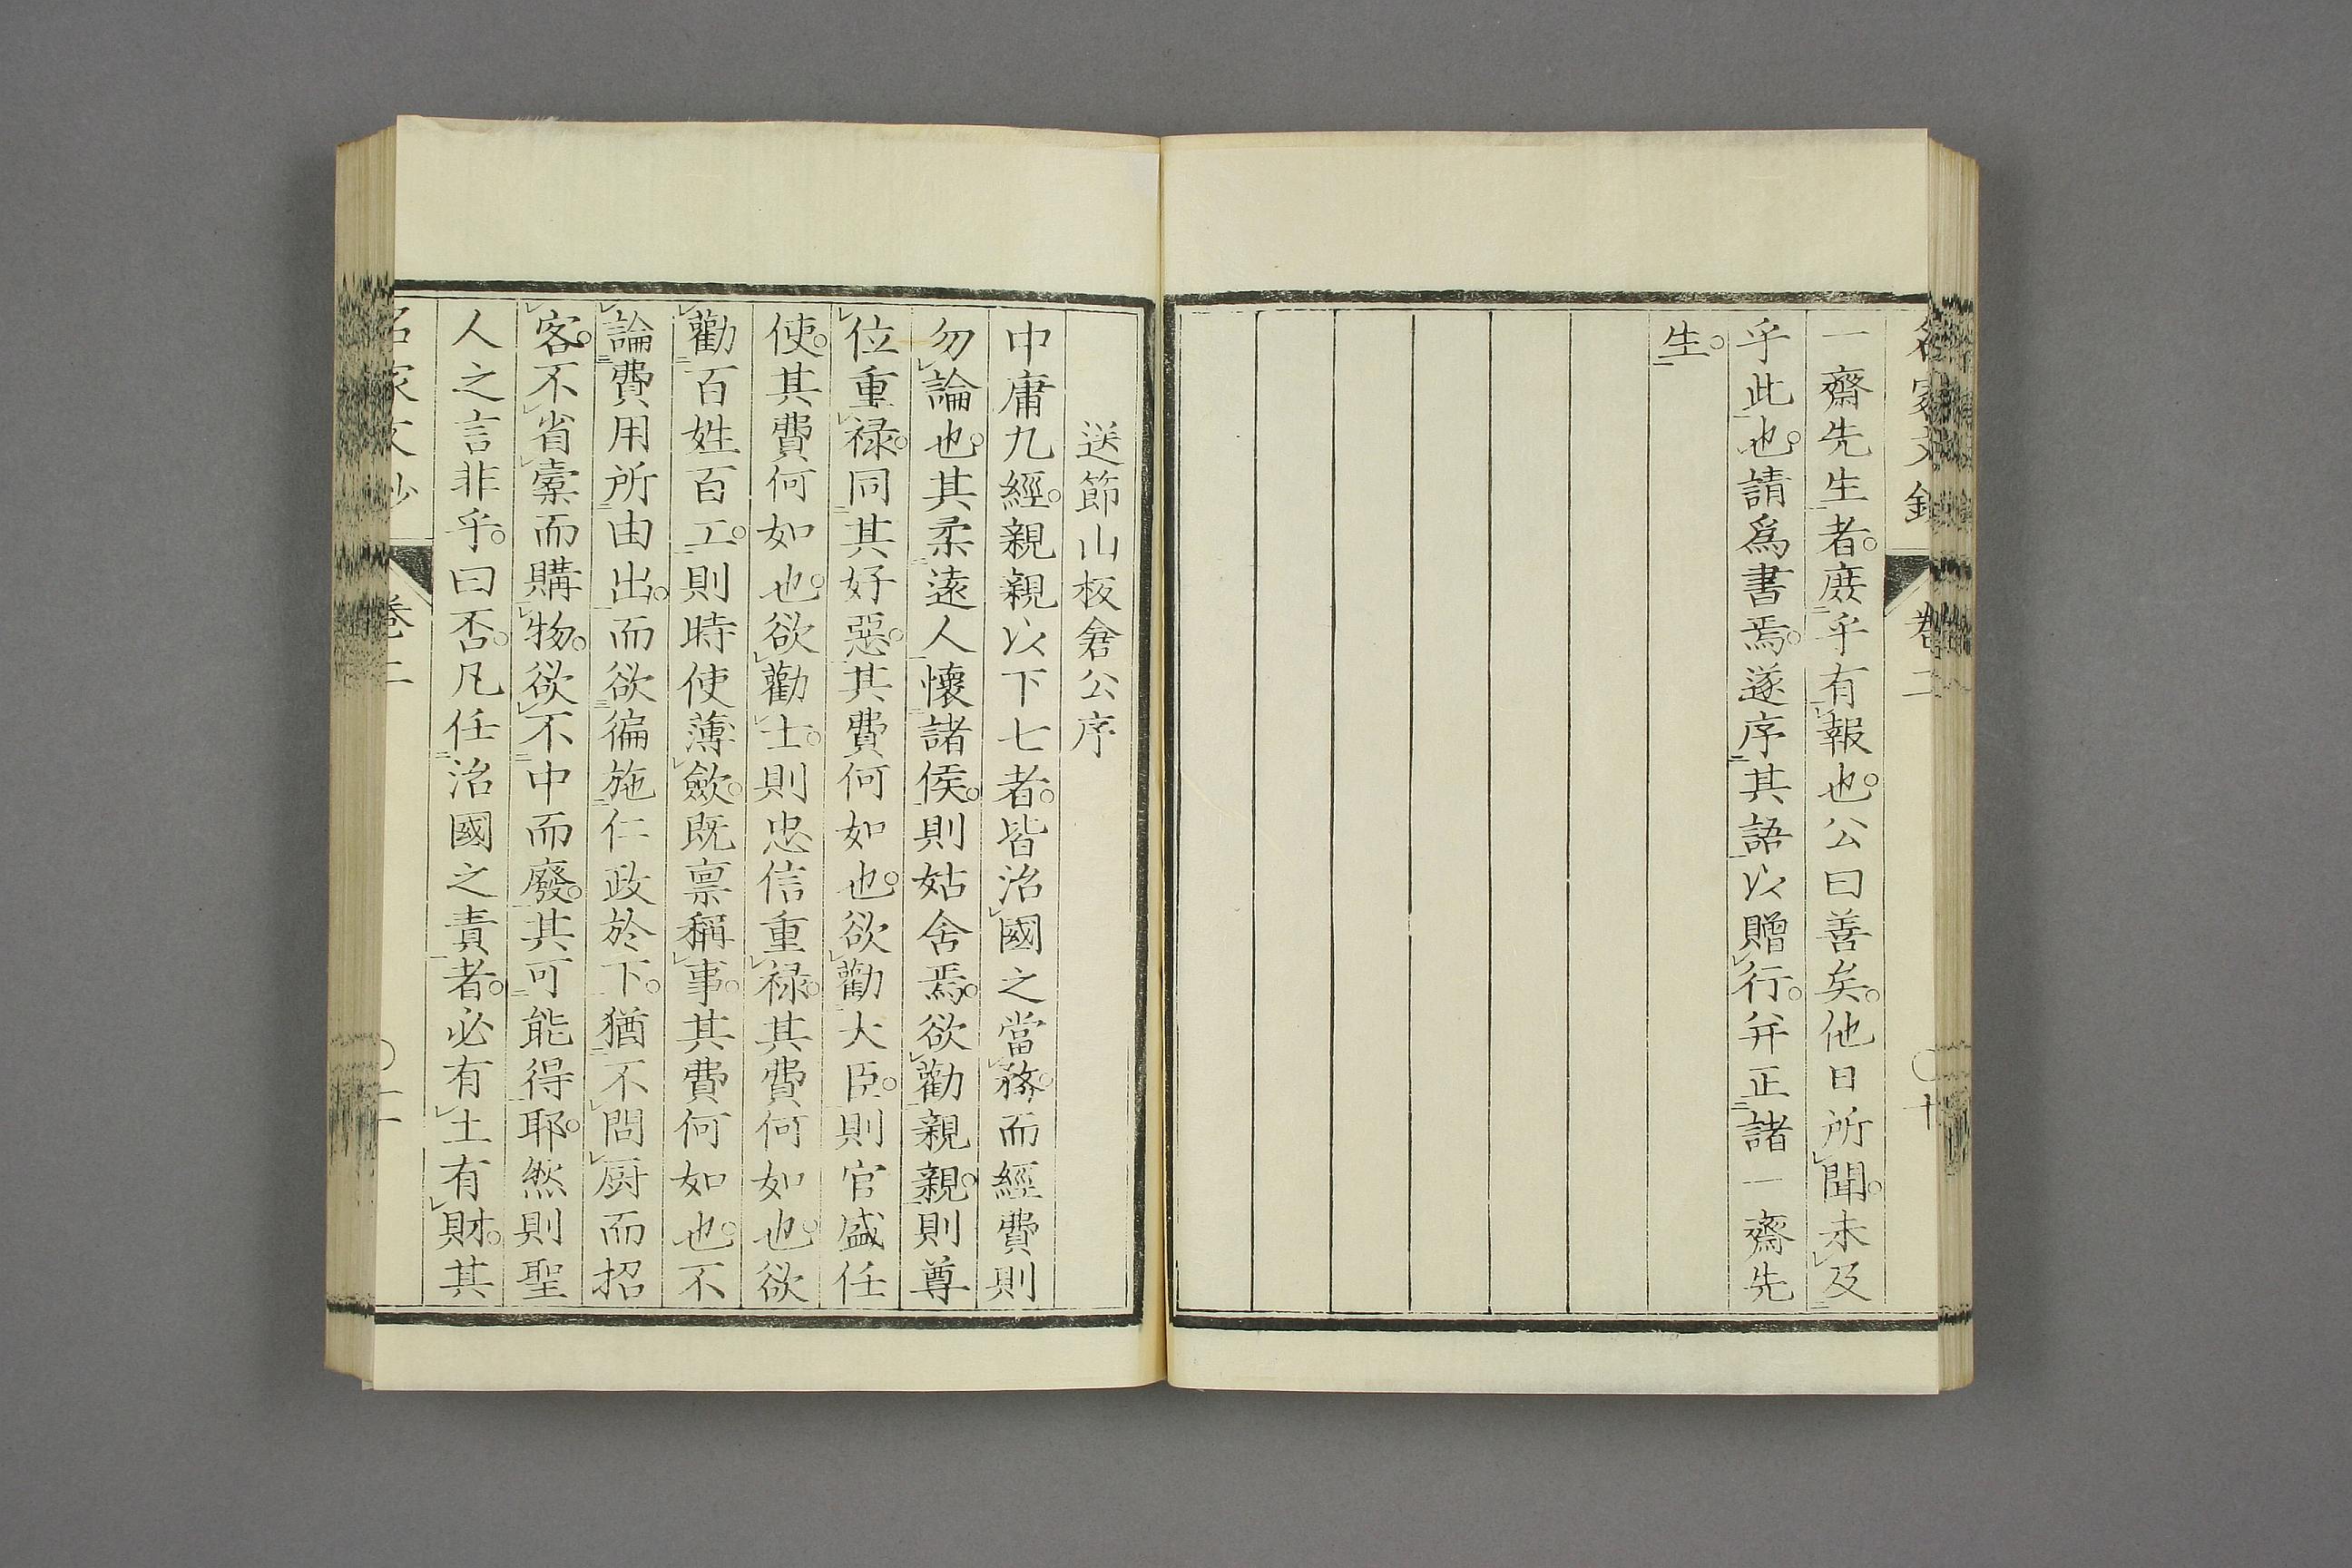 一齋先生者。庶乎有報也。公曰善矣。他日所聞。未及
乎此也。請爲書焉。遂序其語以贈行。幷正諸一齋先
生。
送節山板倉公序
中庸九經。親親以下七者。皆治國之當務。而經費則
勿論也。其柔遠人懷諸侯。則姑舍焉。欲勸親親。則尊
位重祿。同其好惡。其費何如也。欲勸大臣。則官盛任
使。其費何如也。欲勸士。則忠信重祿。其費何如也。欲
勸百姓百工。則時使薄斂。既稟稱事。其費何如也。不
論費用所由出。而欲徧施仁政於下。猶不問厨而招
客。不省橐而購物。欲不中而廢。其可能得耶。然則聖
人之言非乎。曰否。凡任治國之責者。必有土有財。其
卷二